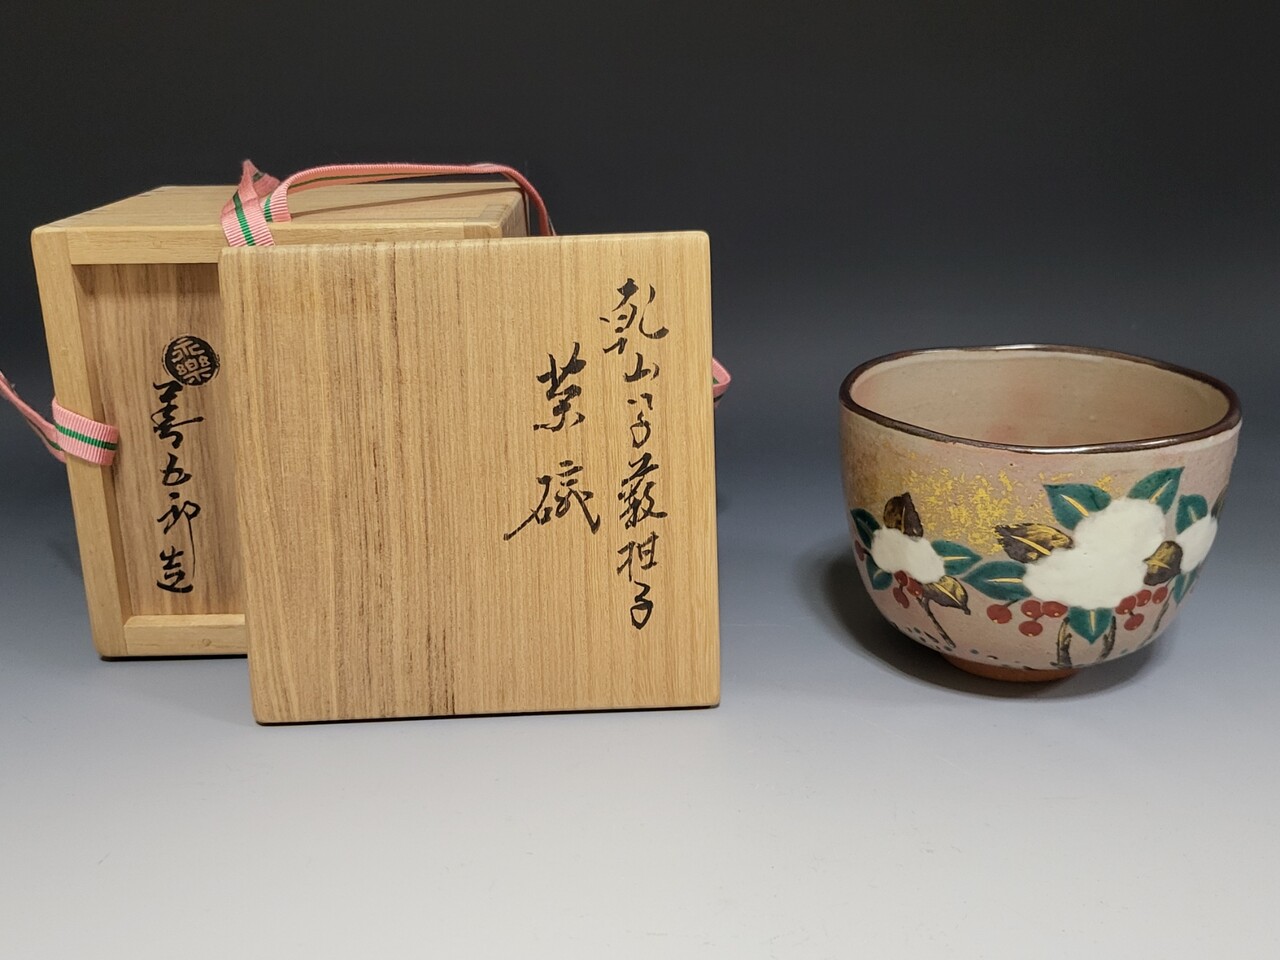 乾山写藪柑子
茶碗
永樂
善五郎造